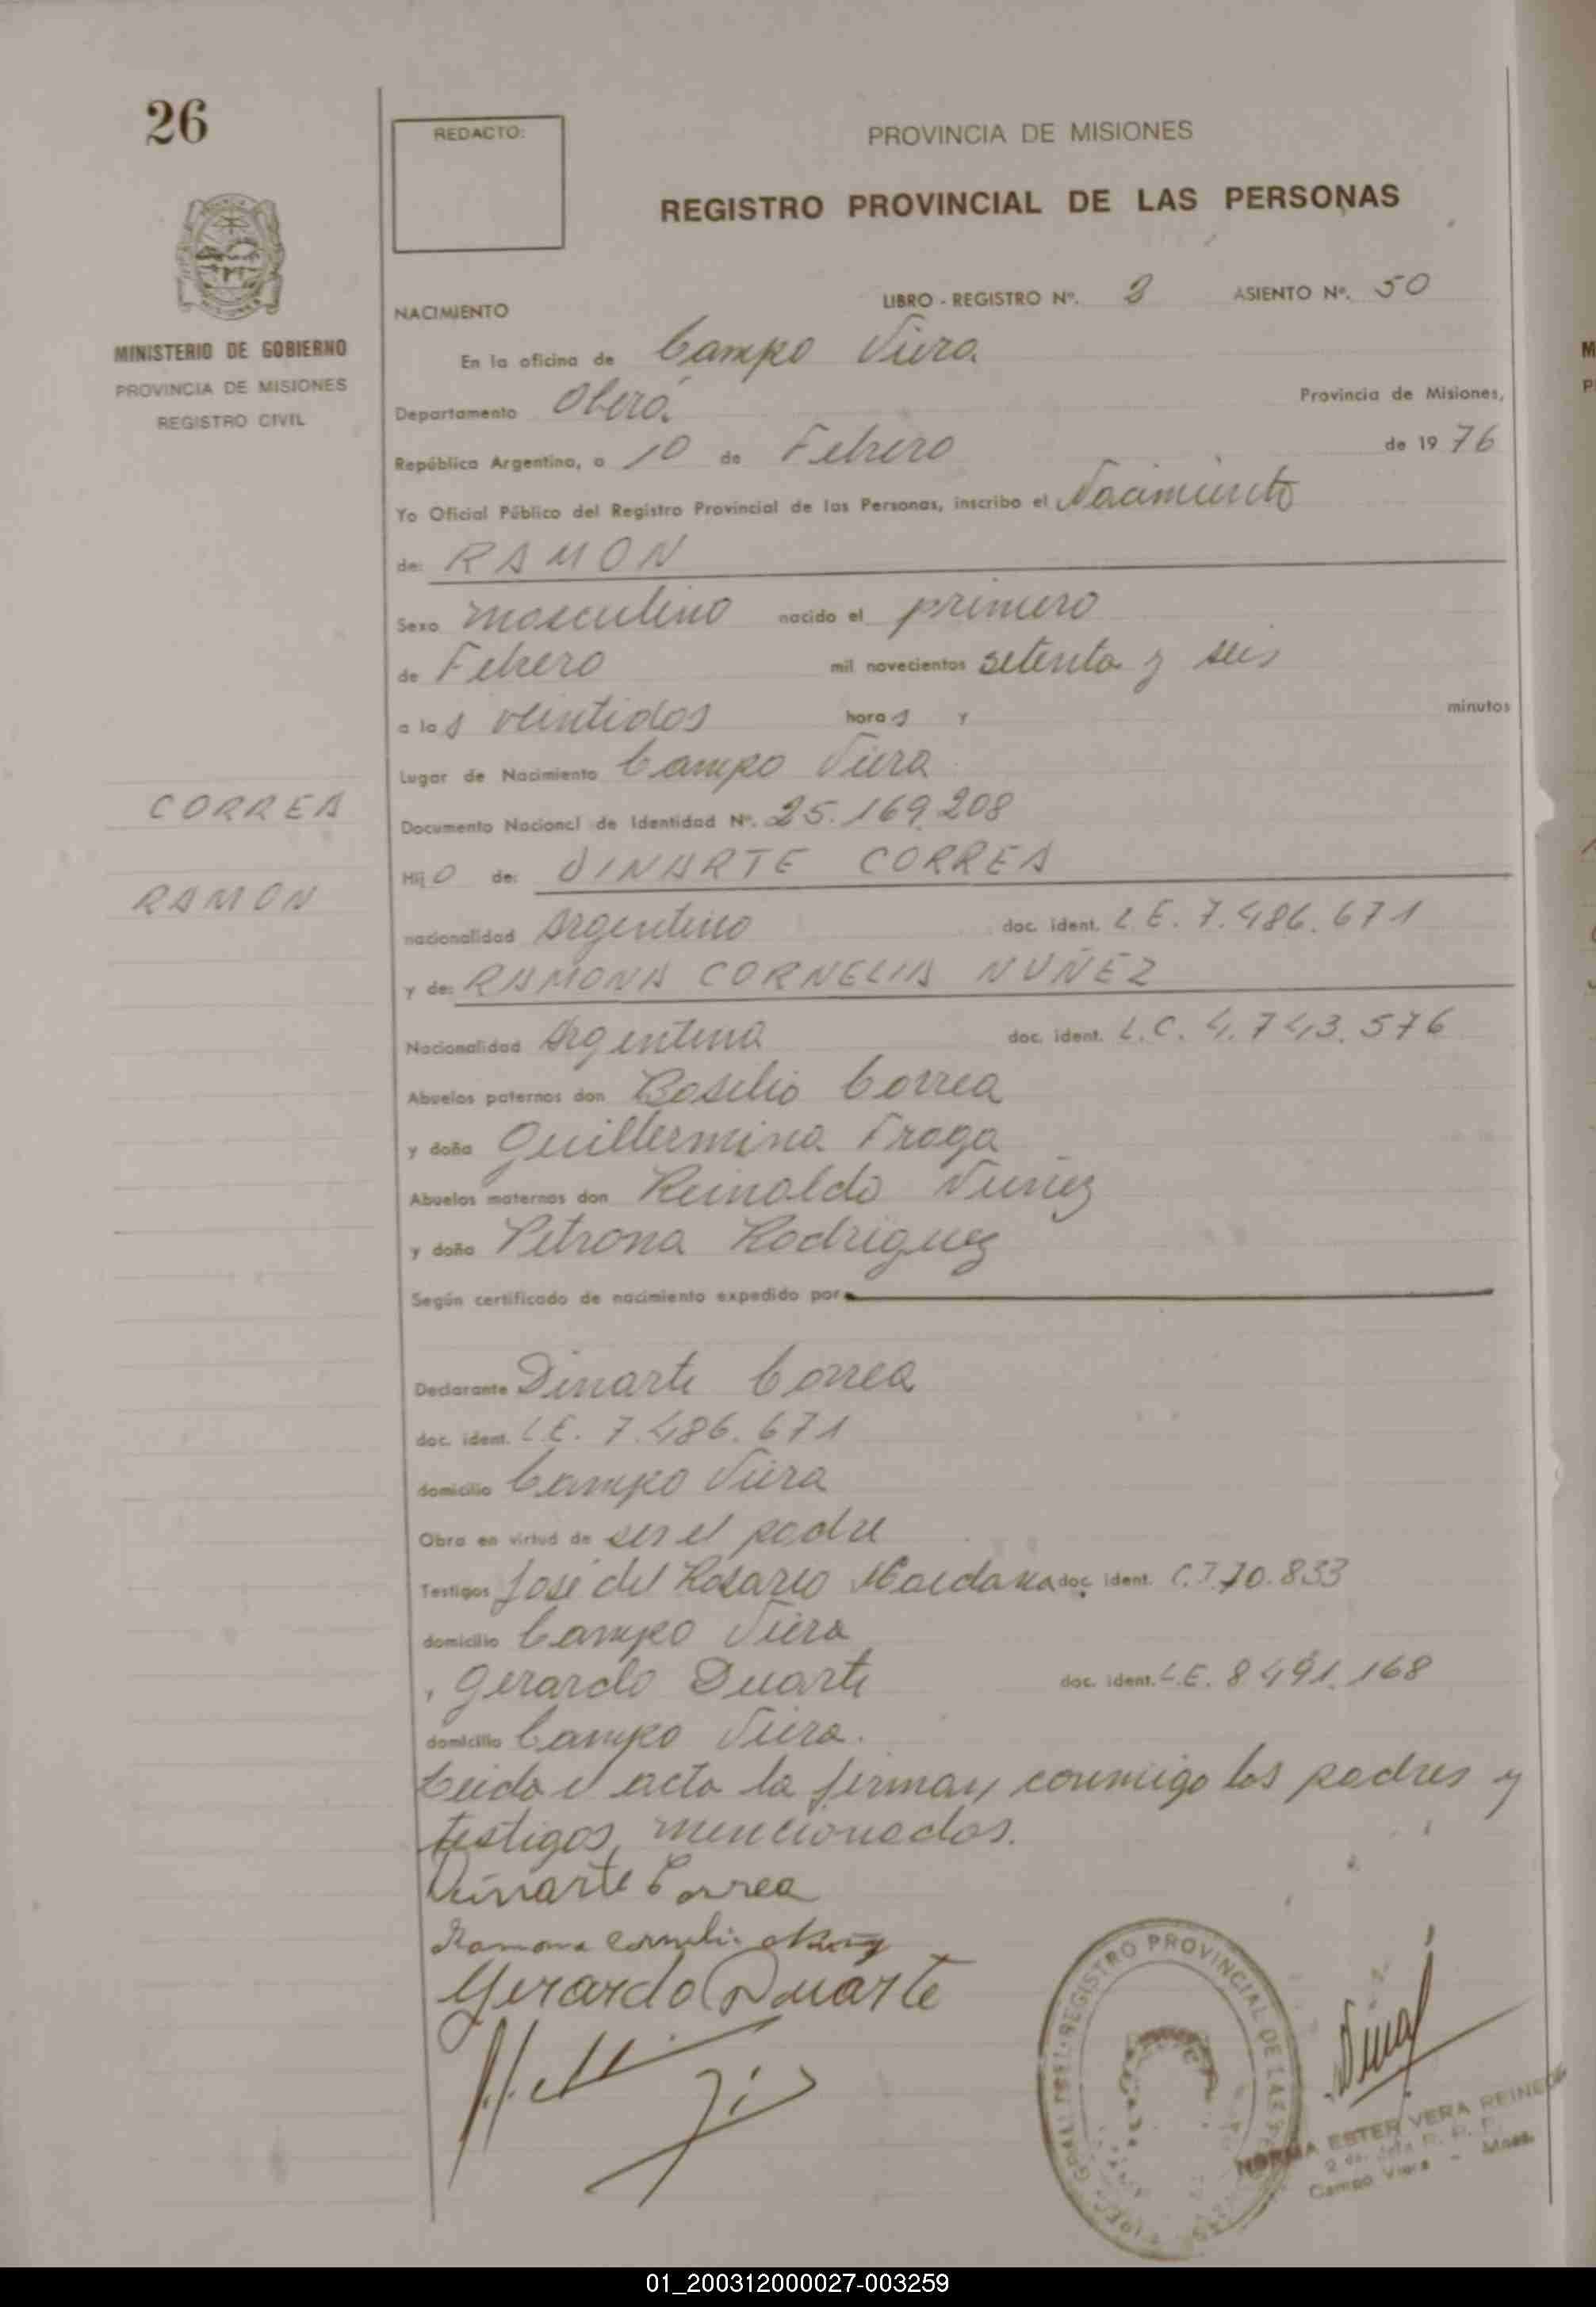 26
REDACTO:
PROVINCIA DE MISIONES
REGISTRO PROVINCIAL DE LAS PERSONAS
MINISTERIO DE GOBIERNO
PROVINCIA DE MISIONES
REGISTRO CIVIL
NACIMIENTO LIBRO - REGISTRO Nº. 2 ASIENTO Nº. 50
En la oficina de Campo Viera
Departamento Oberá Provincia de Misiones,
República Argentina, a 10 de Febrero de 1976
Yo Oficial Público del Registro Provincial de las Personas, inscribo el Nacimiento
de: RAMON
Sexo masculino nacido el primero
de Febrero mil novecientos setenta y seis
a las veintidos horas y minutos
Lugar de Nacimiento Campo Viera
CORREA
Documento Nacional de Identidad Nº. 25.169.208
Hijo de: DINARTE CORREA
RAMON
nacionalidad Argentino doc. ident. L.E. 7.486.671
y de: RAMONA CORNELIA NUÑEZ
Nacionalidad Argentina doc. ident. L.C. 4.743.576
Abuelos paternos don Basilio Correa
y doña Guillermina Fraga
Abuelos maternos don Reinaldo Nuñez
y doña Petrona Rodriguez
Según certificado de nacimiento expedido por
Declarante Dinarte Correa
doc. ident. L.E. 7.486.671
domicilio Campo Viera
Obra en virtud de ser el padre
Testigos José del Rosario Maidana doc. ident. C.I. 70.833
domicilio Campo Viera
y Gerardo Duarte doc. ident. L.E. 8.491.168
domicilio Campo Viera.
Leida el acta la firman conmigo los padres y
testigos mencionados.
Dinarte Correa
Ramona Cornelia Nuñez
Gerardo Duarte
REGISTRO PROVINCIAL DE LAS
NORMA ESTER VERA REINECK
Campo Viera - Mnes.
01_200312000027-003259